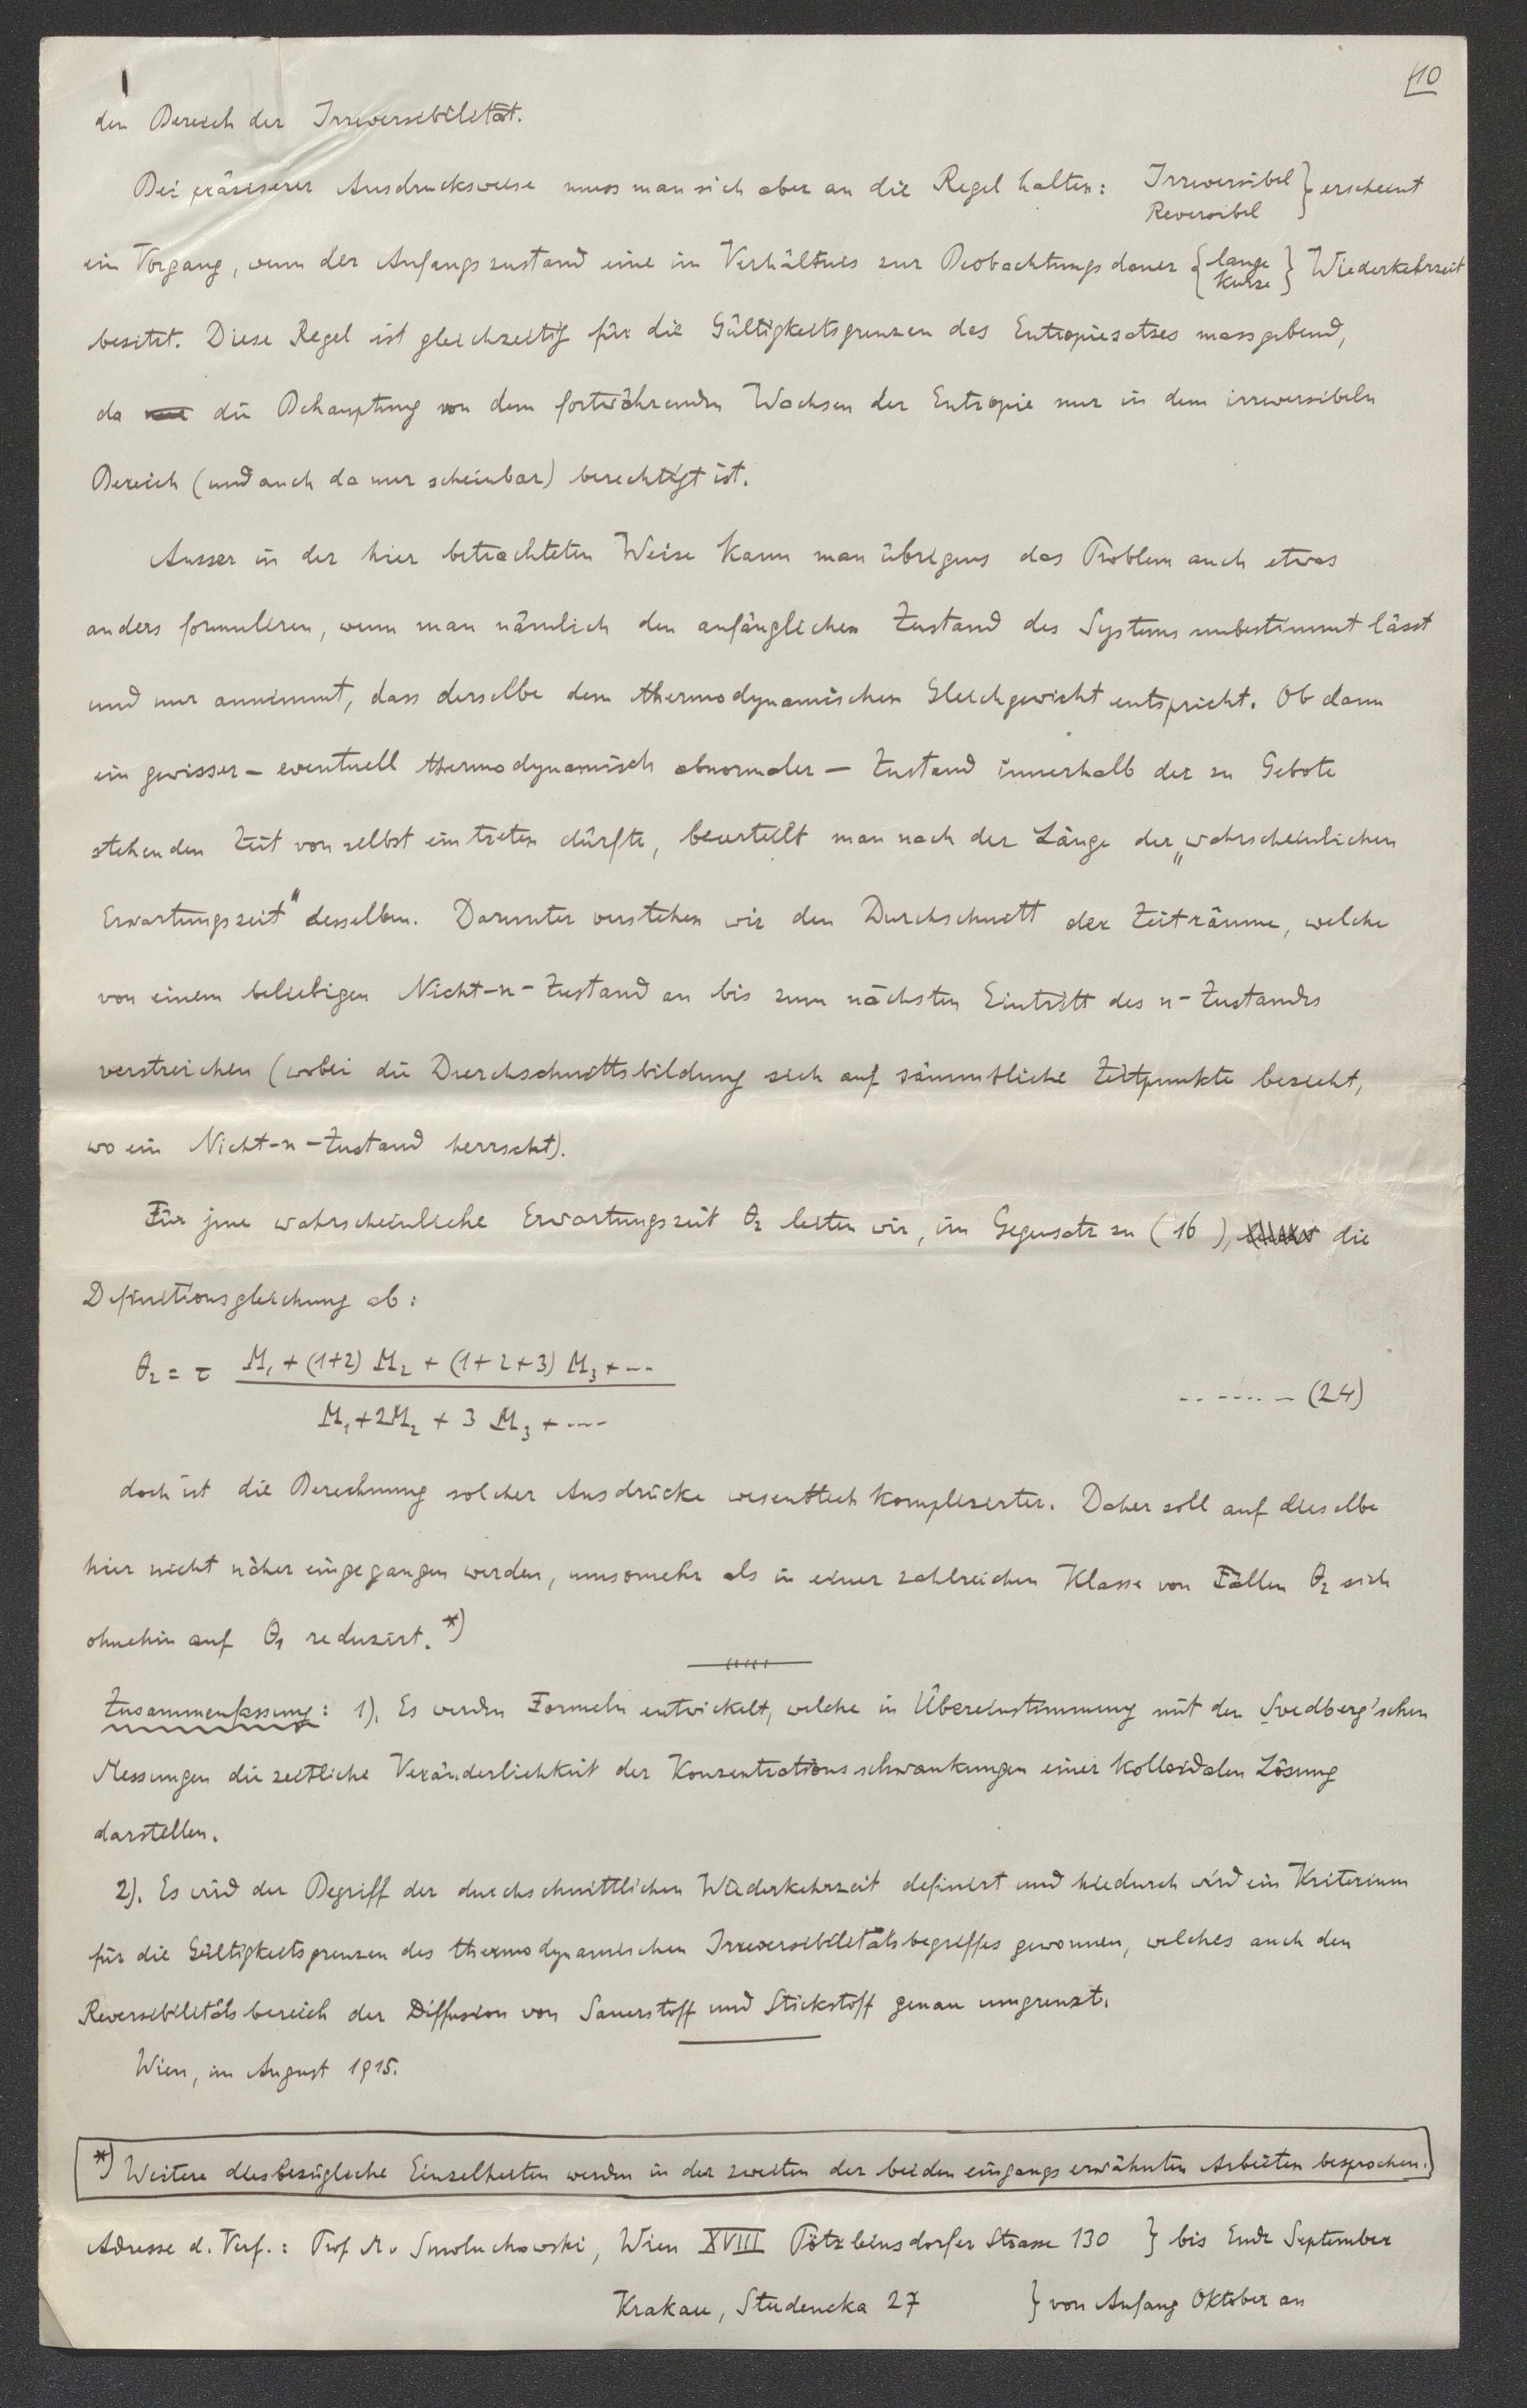 10
den Bereich der Irreversibilität.
Bei präziserer Ausdrucksweise muss man sich aber an die Regel halten: Irreversibel } erscheint
Reversibel
ein Vorgang, wenn der Anfangszustand eine im Verhältnis zur Beobachtungsdauer { lange } Wiederkehrzeit
kurze
besitzt. Diese Regel ist gleichzeitig für die Gültigkeitsgrenzen des Entropiesatzes massgebend,
da die Behauptung von dem fortwährenden Wachsen der Entropie nur in dem irreversibeln
Bereich (und auch da nur scheinbar) berechtigt ist.
Ausser in der hier betrachteten Weise kann man übrigens das Problem auch etwas
anders formulieren, wenn man nämlich den anfänglichen Zustand des Systems unbestimmt lässt
und nur annimmt, dass derselbe dem thermodynamischen Gleichgewicht entspricht. Ob dann
ein gewisser – eventuell thermodynamisch abnormaler – Zustand innerhalb der zu Gebote
stehenden Zeit von selbst eintreten dürfte, beurteilt man nach der Länge der „wahrscheinlichen
Erwartungszeit" desselben. Darunter verstehen wir den Durchschnitt der Zeiträume, welche
von einem beliebigen Nicht-n-Zustand an bis zum nächsten Eintritt des n-Zustandes
verstreichen (wobei die Durchschnittsbildung sich auf sämmtliche Zeitpunkte bezieht,
wo ein Nicht-n-Zustand herrscht).
Für jene wahrscheinliche Erwartungszeit θ₂ leiten wir, im Gegensatz zu (16), die
Definitionsgleichung ab:
θ₂ = τ (M₁ + (1+2) M₂ + (1+2+3) M₃ + ...) / (M₁ + 2M₂ + 3 M₃ + ....) ....... (24)
doch ist die Berechnung solcher Ausdrücke wesentlich komplizierter. Daher soll auf dieselbe
hier nicht näher eingegangen werden, umsomehr als in einer zahlreichen Klasse von Fällen θ₂ sich
ohnehin auf θ₁ reduzirt. *)
Zusammenfassung: 1). Es werden Formeln entwickelt, welche in Übereinstimmung mit den Svedberg'schen
Messungen die zeitliche Veränderlichkeit der Konzentrationsschwankungen einer kolloidalen Lösung
darstellen.
2). Es wird der Begriff der durchschnittlichen Wiederkehrzeit definirt und hiedurch wird ein Kriterium
für die Gültigkeitsgrenzen des thermodynamischen Irreversibilitätsbegriffes gewonnen, welches auch den
Reversibilitätsbereich der Diffusion von Sauerstoff und Stickstoff genau umgrenzt.
Wien, im August 1915.
*) Weitere diesbezügliche Einzelheiten werden in der zweiten der beiden eingangs erwähnten Arbeiten besprochen.
Adresse d. Verf.: Prof M. v Smoluchowski, Wien XVIII Pötzleinsdorfer Strasse 130 } bis Ende September
Krakau, Studencka 27 } von Anfang Oktober an